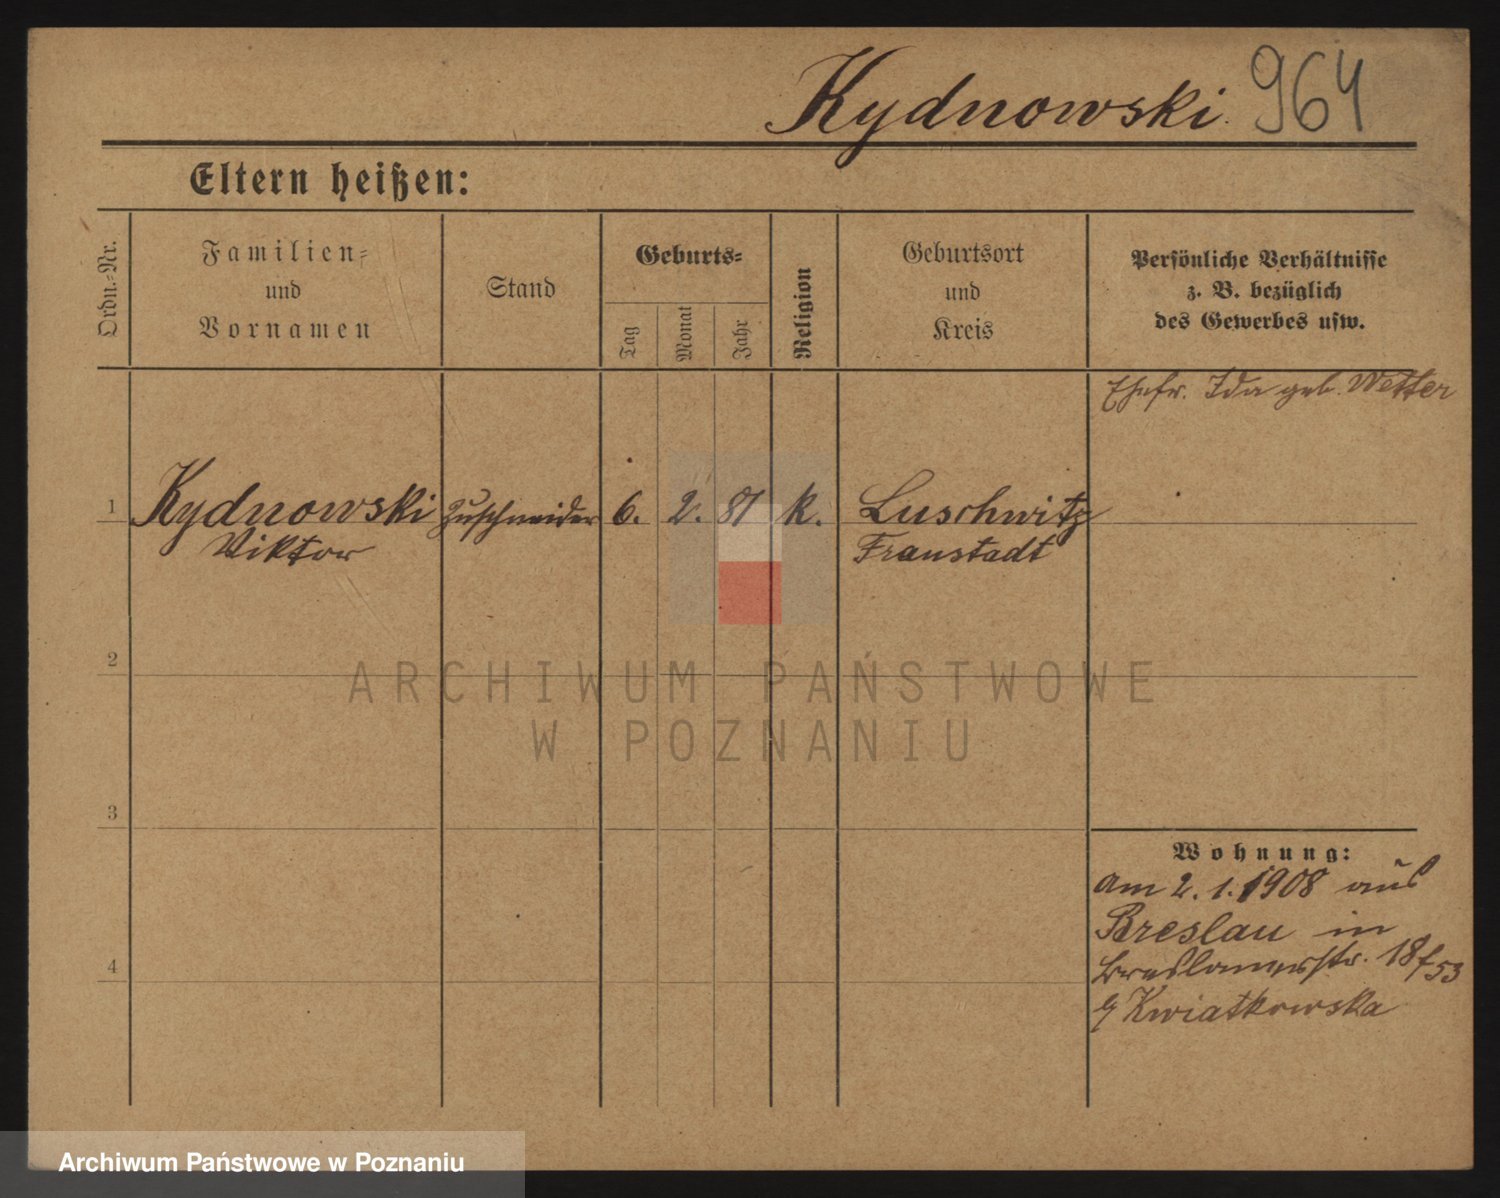 Kydnowski. 964
Eltern heißen:
Ordn.-Nr.
Familien-
und
Vornamen
Stand
Geburts-
Tag
Monat
Jahr
Religion
Geburtsort
und
Kreis
Persönliche Verhältnisse
z. B. bezüglich
des Gewerbes usw.
Ehefr. Ida geb. Wetter
1 Kydnowski Zuschneider 6. 2. 81 k. Luschwitz
Viktor Fraustadt
2
ARCHIWUM PAŃSTWOWE
W POZNANIU
3
Wohnung:
am 2. 1. 1908 aus
Breslau in
4 Breslauerstr. 18/53
Kwiatkowska
Archiwum Państwowe w Poznaniu